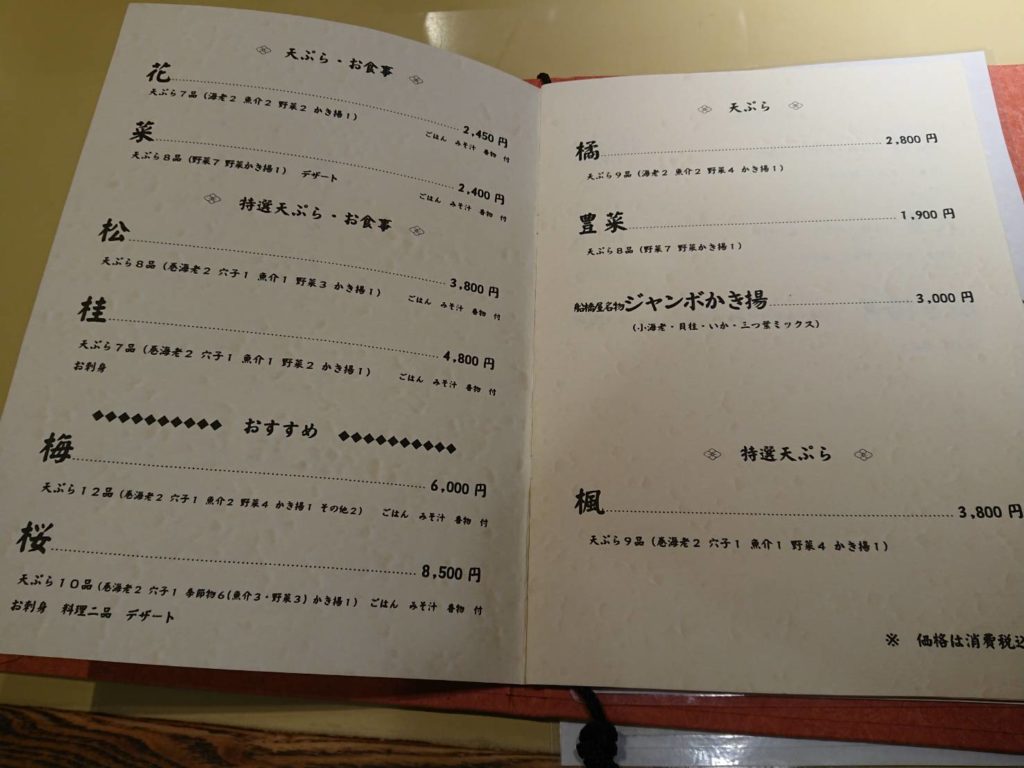 天ぷら・お食事
花 2,450 円
天ぷら7品 (海老2 魚介2 野菜2 かき揚1) ごはん みそ汁 香物 付
菜 2,400 円
天ぷら8品 (野菜7 野菜かき揚1) デザート ごはん みそ汁 香物 付
特選天ぷら・お食事
松 3,800 円
天ぷら8品 (巻海老2 穴子1 魚介1 野菜3 かき揚1) ごはん みそ汁 香物 付
桂 4,800 円
天ぷら7品 (巻海老2 穴子1 魚介1 野菜2 かき揚1) ごはん みそ汁 香物 付
お刺身
おすすめ
梅 6,000 円
天ぷら12品 (巻海老2 穴子1 魚介2 野菜4 かき揚1 その他2) ごはん みそ汁 香物 付
桜 8,500 円
天ぷら10品 (巻海老2 穴子1 季節物6(魚介3・野菜3) かき揚1) ごはん みそ汁 香物 付
お刺身 料理二品 デザート
天ぷら
橘 2,800 円
天ぷら9品 (海老2 魚介2 野菜4 かき揚1)
豊菜 1,900 円
天ぷら8品 (野菜7 野菜かき揚1)
船橋屋名物ジャンボかき揚 3,000 円
(小海老・貝柱・いか・三つ葉ミックス)
特選天ぷら
楓 3,800 円
天ぷら9品 (巻海老2 穴子1 魚介1 野菜4 かき揚1)
※ 価格は消費税込